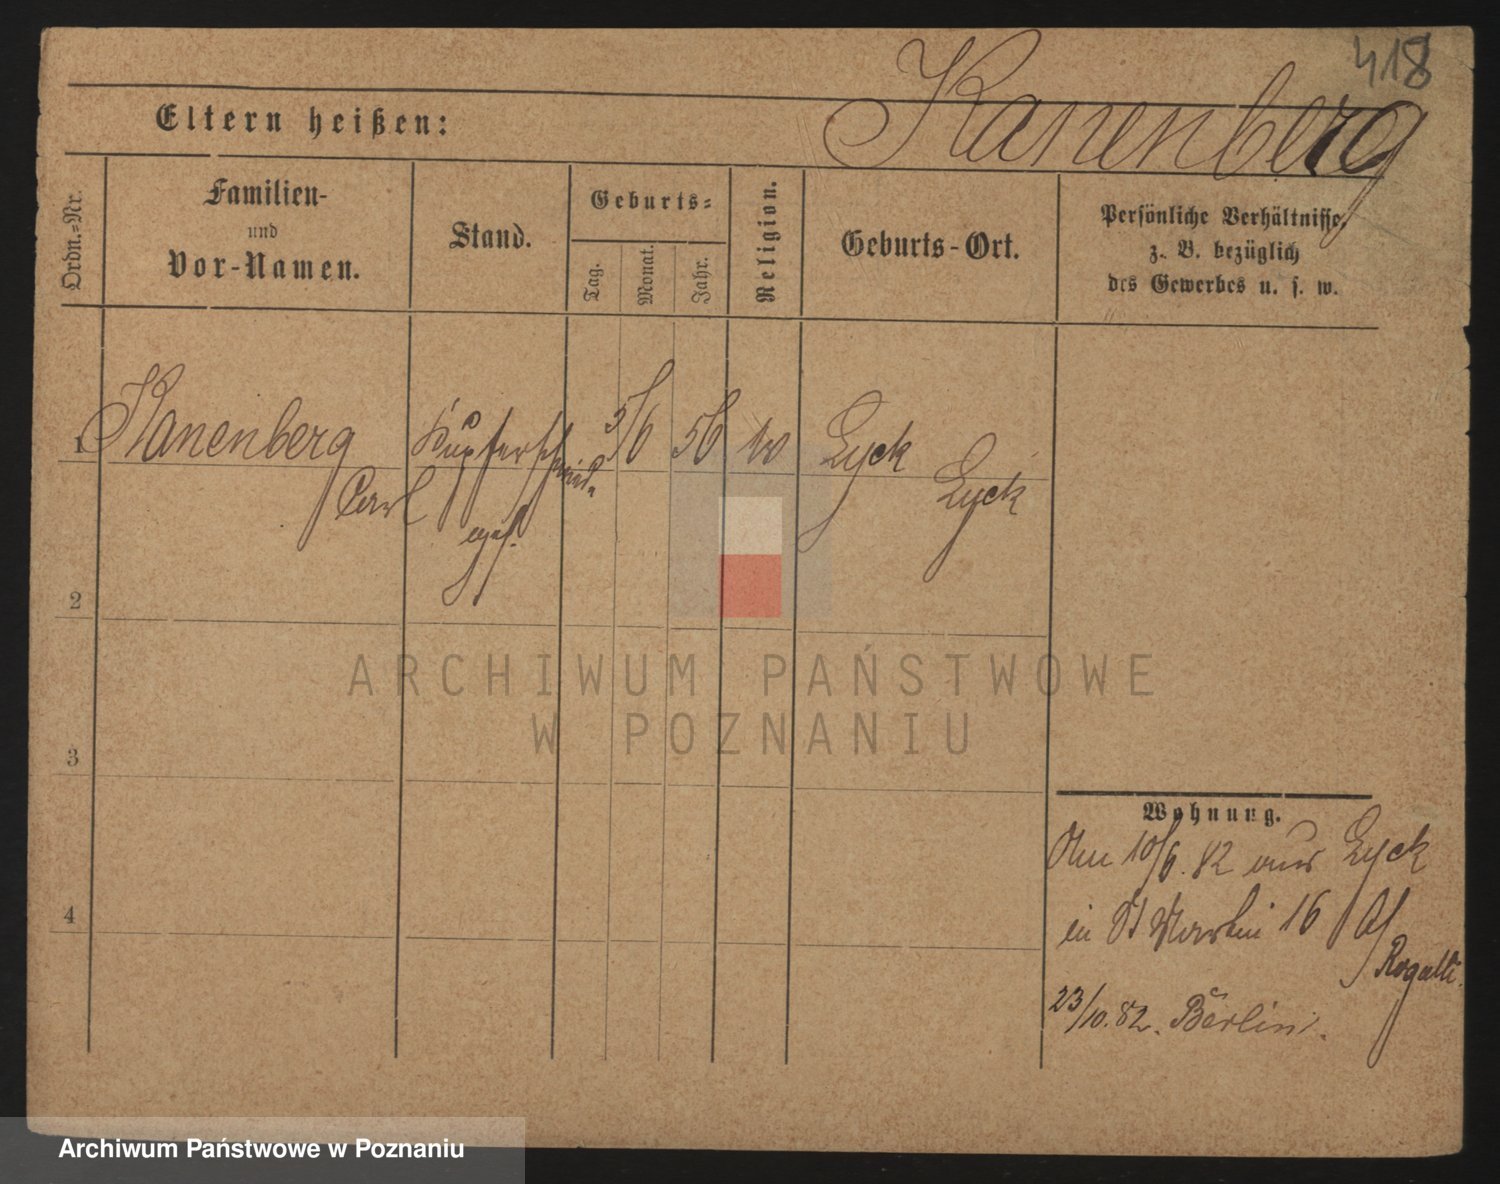 418
Kanenberg
Eltern heißen:
Ordn.-Nr.
Familien-
und
Vor-Namen.
Stand.
Geburts-
Tag.
Monat.
Jahr.
Religion.
Geburts-Ort.
Persönliche Verhältnisse,
z. B. bezüglich
des Gewerbes u. s. w.
1
Kanenberg
Carl
Kupferschmied
5/6 56
Lyck
Lyck
2
3
4
Wohnung.
Am 10/6. 82 aus Lyck
in St Martin 16
23/10. 82. Berlin.
ARCHIWUM PAŃSTWOWE
W POZNANIU
Archiwum Państwowe w Poznaniu